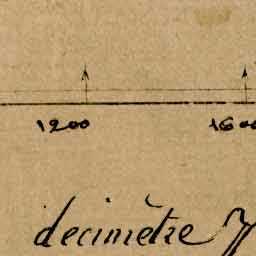 1200 1600
decimètre